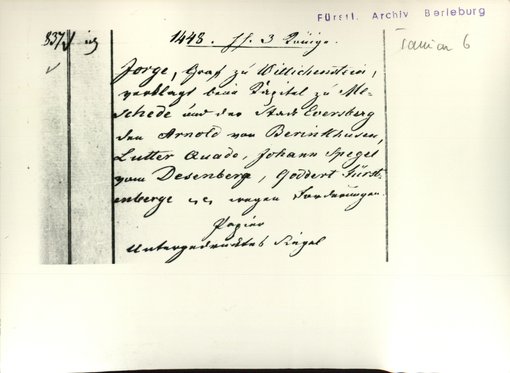 Fürstl. Archiv Berleburg
837
1448. Hl. 3 Könige.
Jorge, Graf zu Wittchenstein,
verklagt beim Kapitel zu Me-
schede und der Stadt Eversberg
den Arnold von Berinkhusen,
Lutter Quade, Johann Spegel
vom Desenberge, Goddert Fürst-
enberge wegen Forderungen.
Papier
Untergedrucktes Siegel